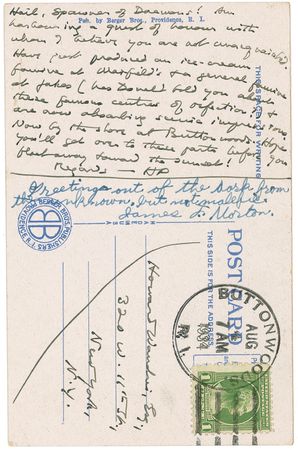 Hail, Spawner of Daemons! Am
Pub. by Berger Bros., Providence, R. I.
harbouring a guest of honour with
whom I believe you are not unacquainted.
Have just produced an ice-cream
famine at Maxfield's & a general famine
at Jakes (has Donald told you about
these famous centres of refection?) &
are now absorbing scenic impressions
by the shore at Buttonwoods. Hope
you'll get over to these parts before you
fleet away toward the sunset!
Regards — HP
THIS SPACE FOR WRITING
Greetings out of the dark from
the unknown, but not malefic
James F. Morton.
BB
POST CARD
THIS SIDE IS FOR THE ADDRESS
Howard Wandrei, Esq.,
320 W. 11th St.,
New York,
N.Y.
BUTTONWOO
AUG
7 AM
R.I.
1
1